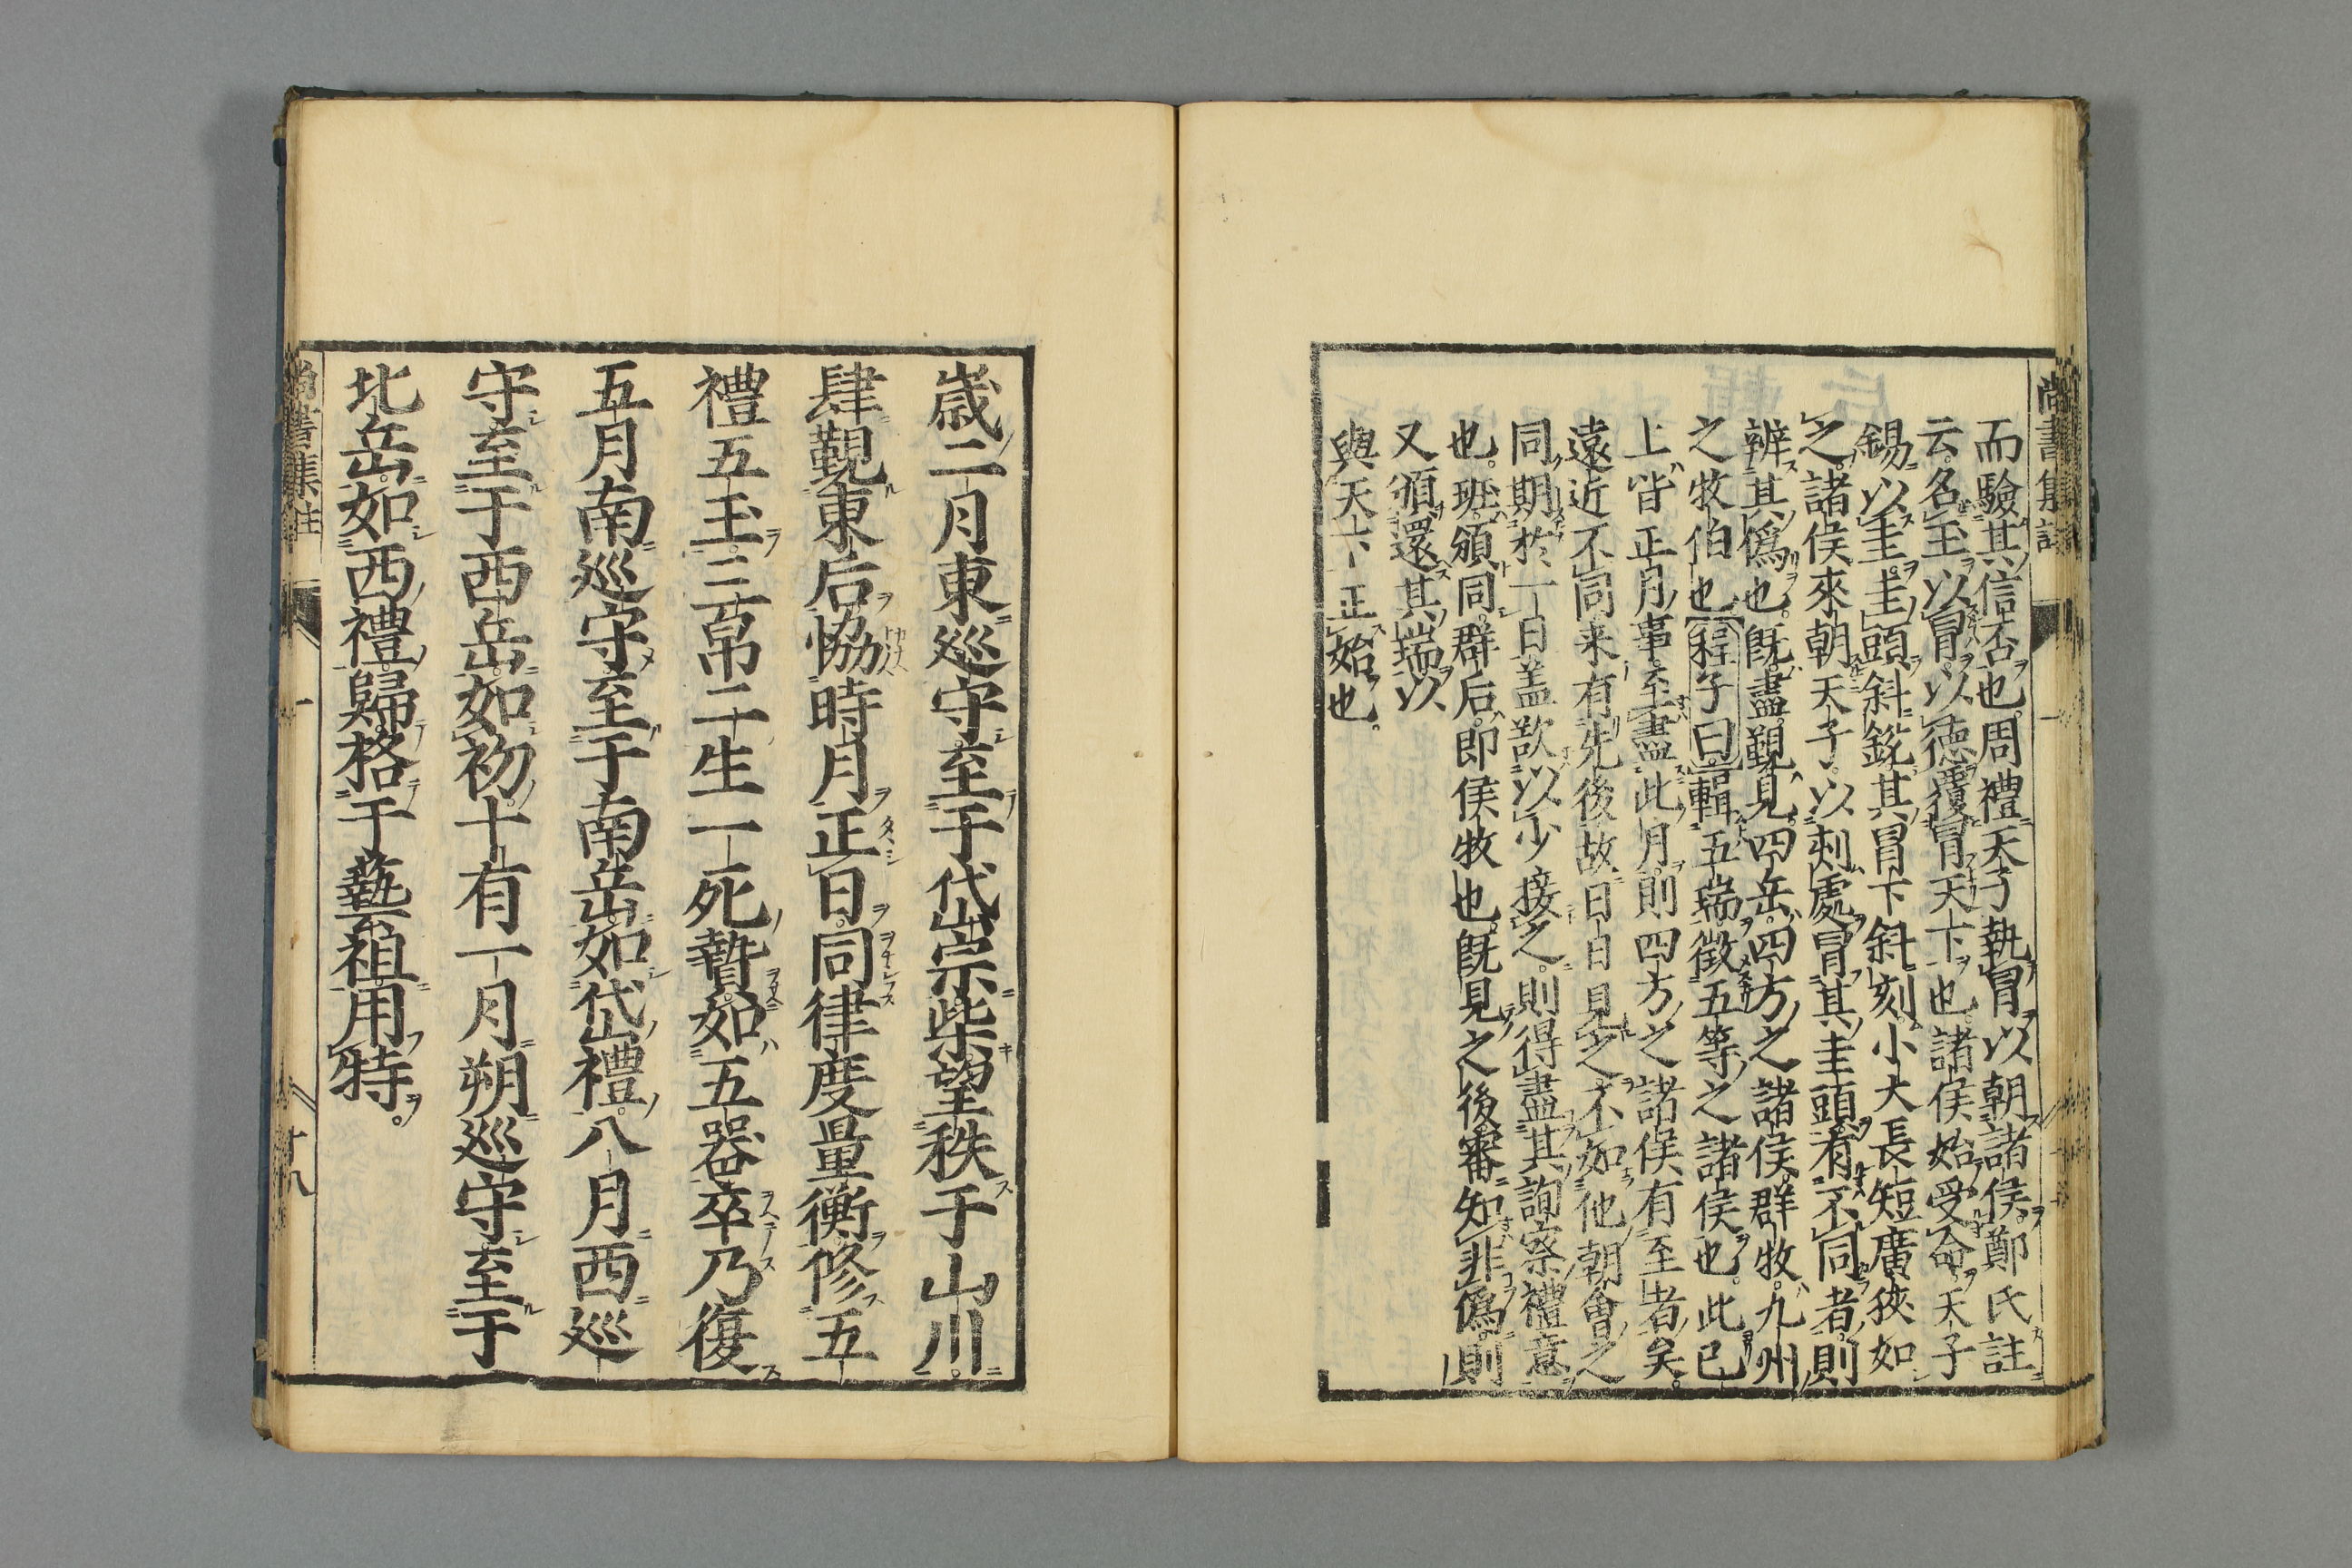 尚書集註
而驗其信否也。周禮天子執冒以朝諸侯。鄭氏註
云。名玉以冒。以德覆冒天下也。諸侯始受命。天子
錫以圭。圭頭斜銳。其冒下斜刻。小大長短廣狹如
之。諸侯來朝天子。以刻處冒其圭頭。有不同者。則
辨其僞也。既盡。覲見。四岳。四方之諸侯。群牧。九州
之牧伯也。程子曰。輯五瑞。徵五等之諸侯也。此已
上皆正月事。至盡此月。則四方之諸侯有至者矣。
遠近不同。来有先後。故日日見之。不如他朝會之
同期於一日。盖欲以少接之。則得盡其詢察禮意
也。班。頒同。群后。即侯牧也。既見之後。審知非僞。則
又頒還其瑞。以
與天下正始也。
歲二月東巡守至于岱宗柴望秩于山川。
肆覲東后。恊時月正日。同律度量衡。修五
禮五玉三帛二生一死贄。如五器卒乃復
五月南巡守至于南岳。如岱禮。八月西巡
守至于西岳。如初。十有一月朔巡守至于
北岳。如西禮。歸。格于藝祖。用特。
尚書集註 一 十八